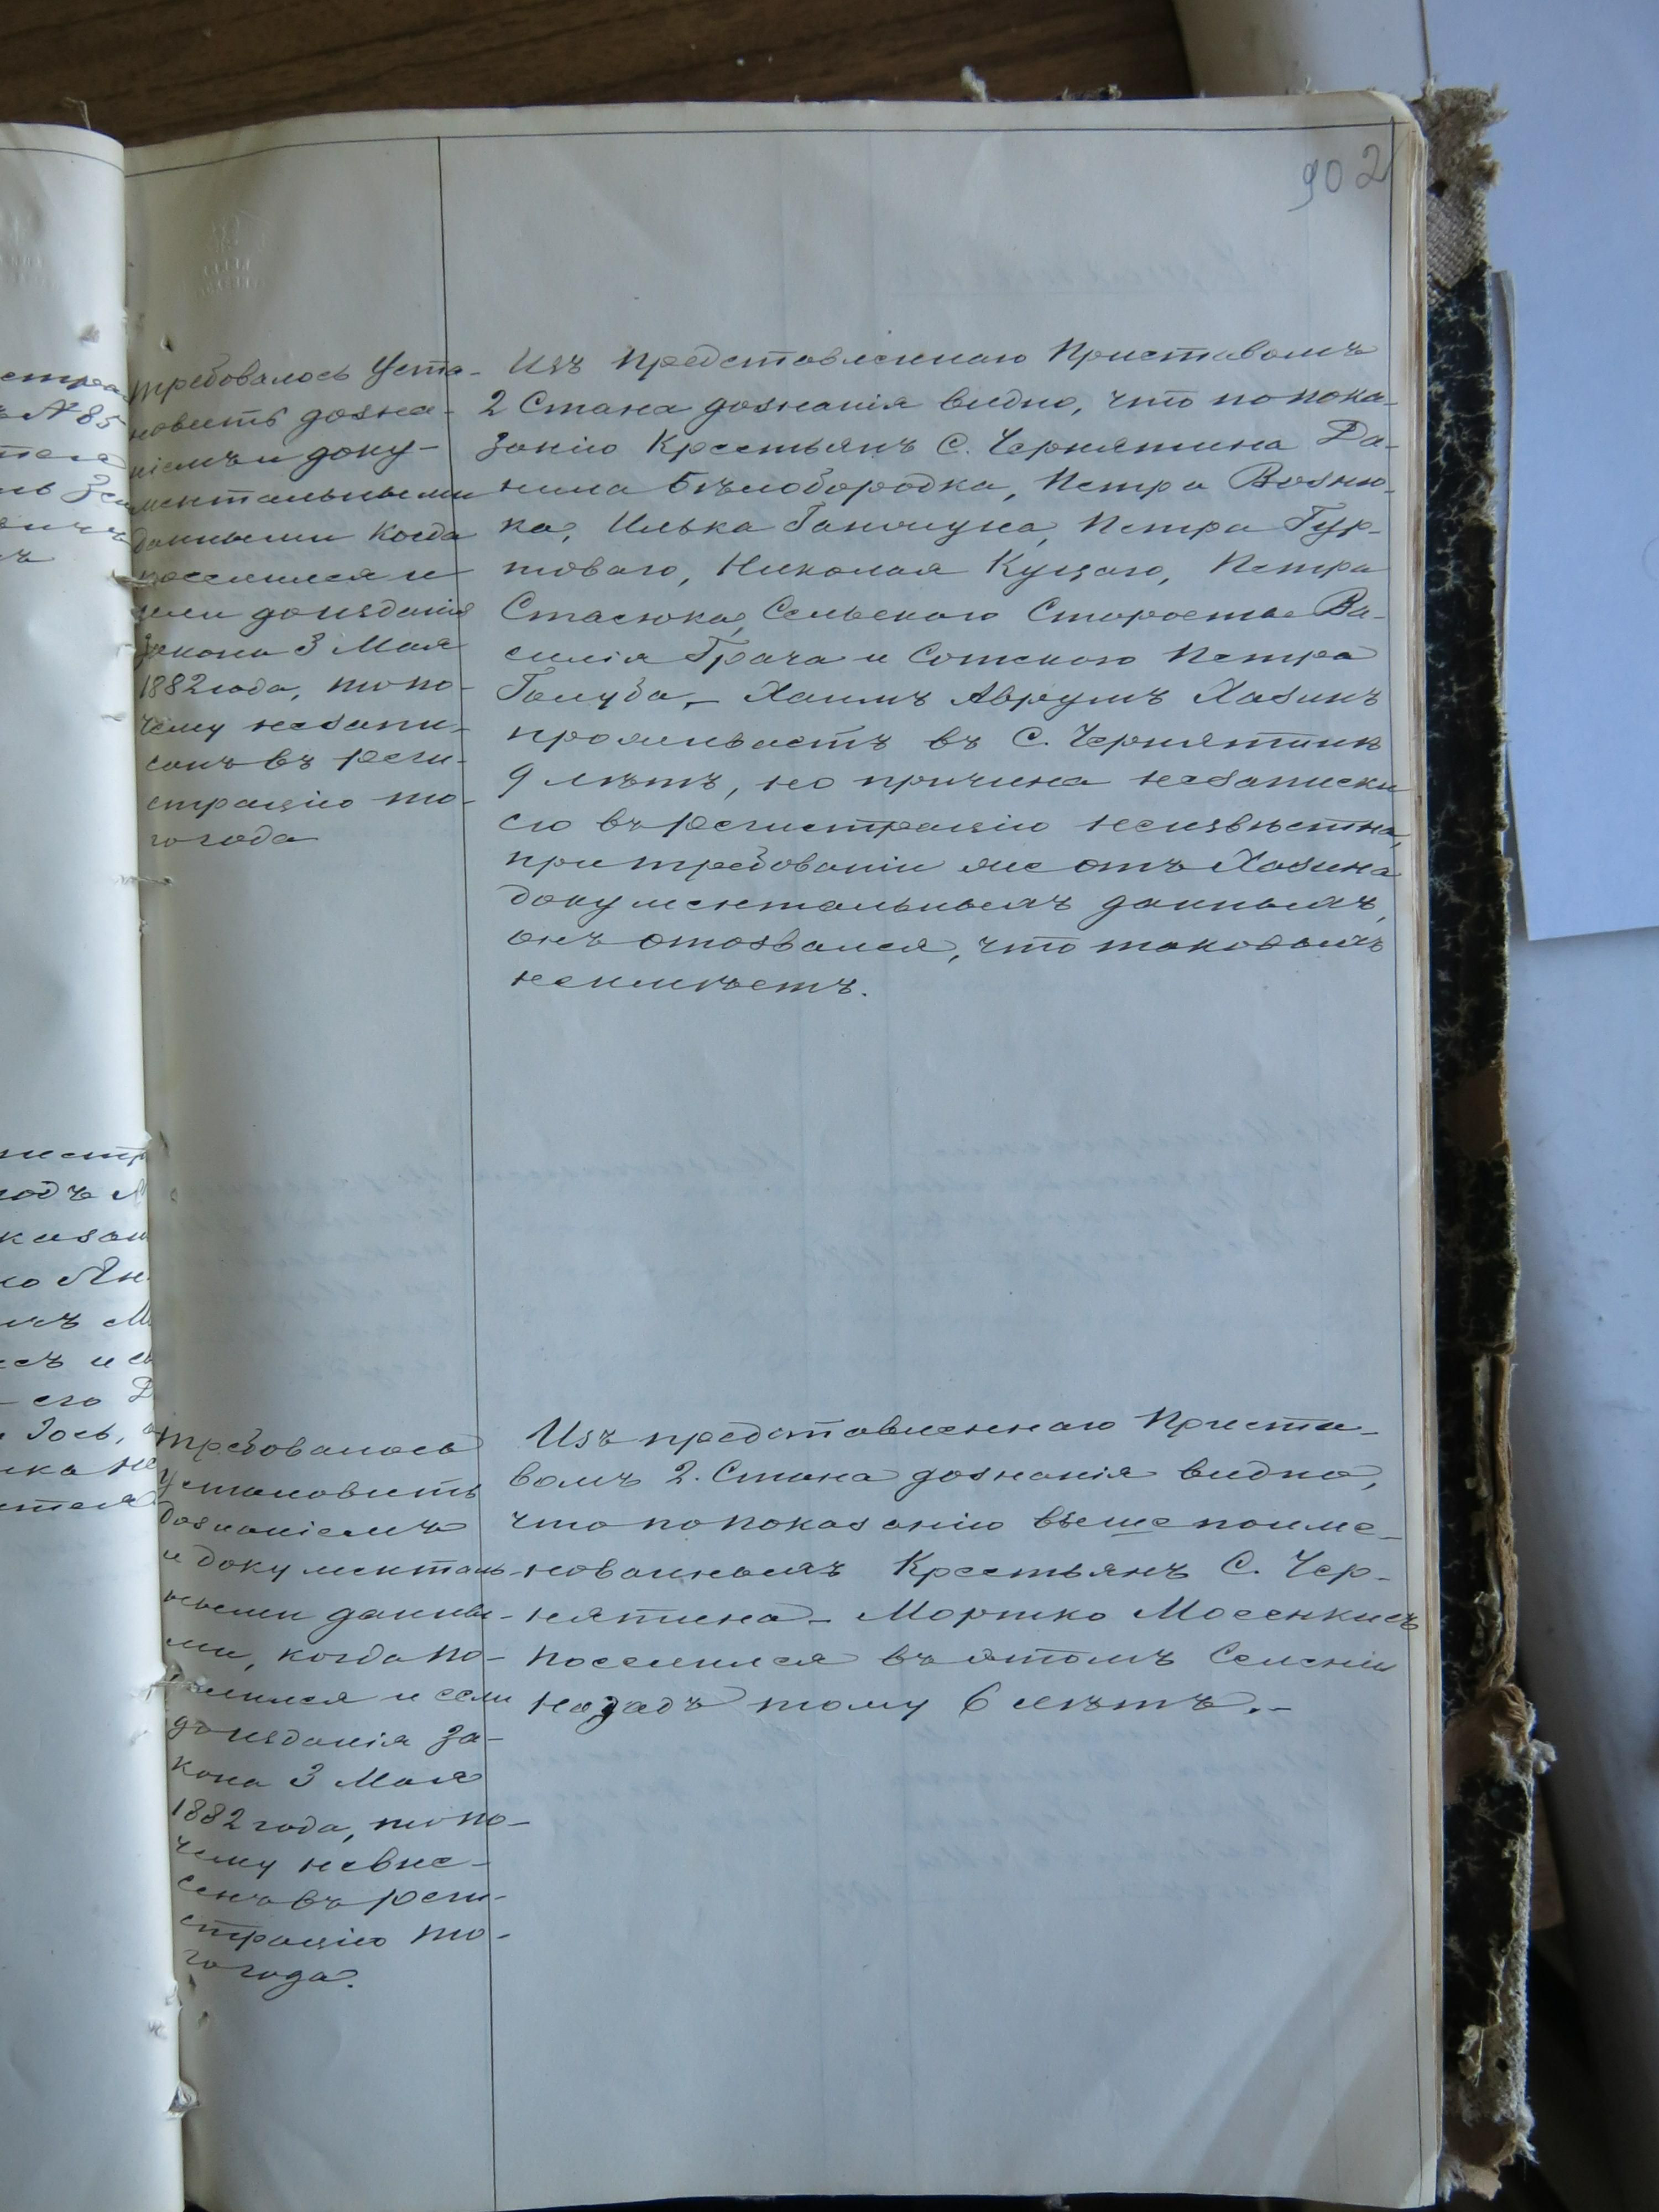 902
требовалось Уста-
новить дозна-
ніемъ и доку-
ментальными
данными когда
поселился и
если до изданія
Закона 3 Мая
1882 года, то по-
чему незапи-
санъ въ реги-
страцію то-
го года
Изъ представленнаго Приставомъ
2 Стана дознанія видно, что по пока-
занію Крестьянъ С. Чернятина Да-
нила Бѣлобородка, Петра Возню-
ка, Илька Ганчука, Петра Гур-
товаго, Николая Куцаго, Петра
Стасюка, Сельскаго Старосты Ва-
силія Грача и Сотскаго Петра
Голуба, - Хаимъ Аврумъ Хазинъ
проживаетъ въ С. Чернятинѣ
9 лѣтъ, но причина незаписки
его въ регистрацію неизвѣстна,
при требованіи же отъ Хазина
документальныхъ данныхъ,
онъ отозвался, что таковыхъ
неимѣетъ.
требовалось
установить
дознаніемъ
и документаль-
ными данны-
ми, когда по-
селился и если
до изданія за-
кона 3 Мая
1882 года, то по-
чему невне-
сенъ въ реги-
страцію то-
го года.
Изъ представленнаго Приста-
вомъ 2. Стана дознанія видно,
что по показанію вышепоиме-
нованныхъ Крестьянъ С. Чер-
нятина - Мортко Мосенкисъ
поселился въ этомъ Селеніи
назадъ тому 6 лѣтъ. -